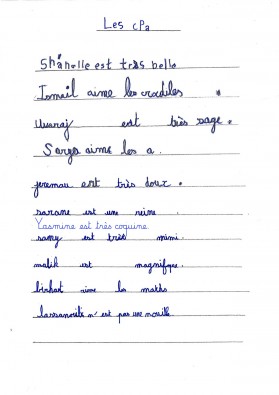 Les cPa
Shanelle est très belle
Ismail aime les crocdiles .
est très sage .
Sarga aime les a .
jeremau est très doux .
sarane est une reine .
Yasmine est très coquine
samy est très mimi .
malik est magnifique .
binhart aime les maths
lassanoité n'est pas une nouille